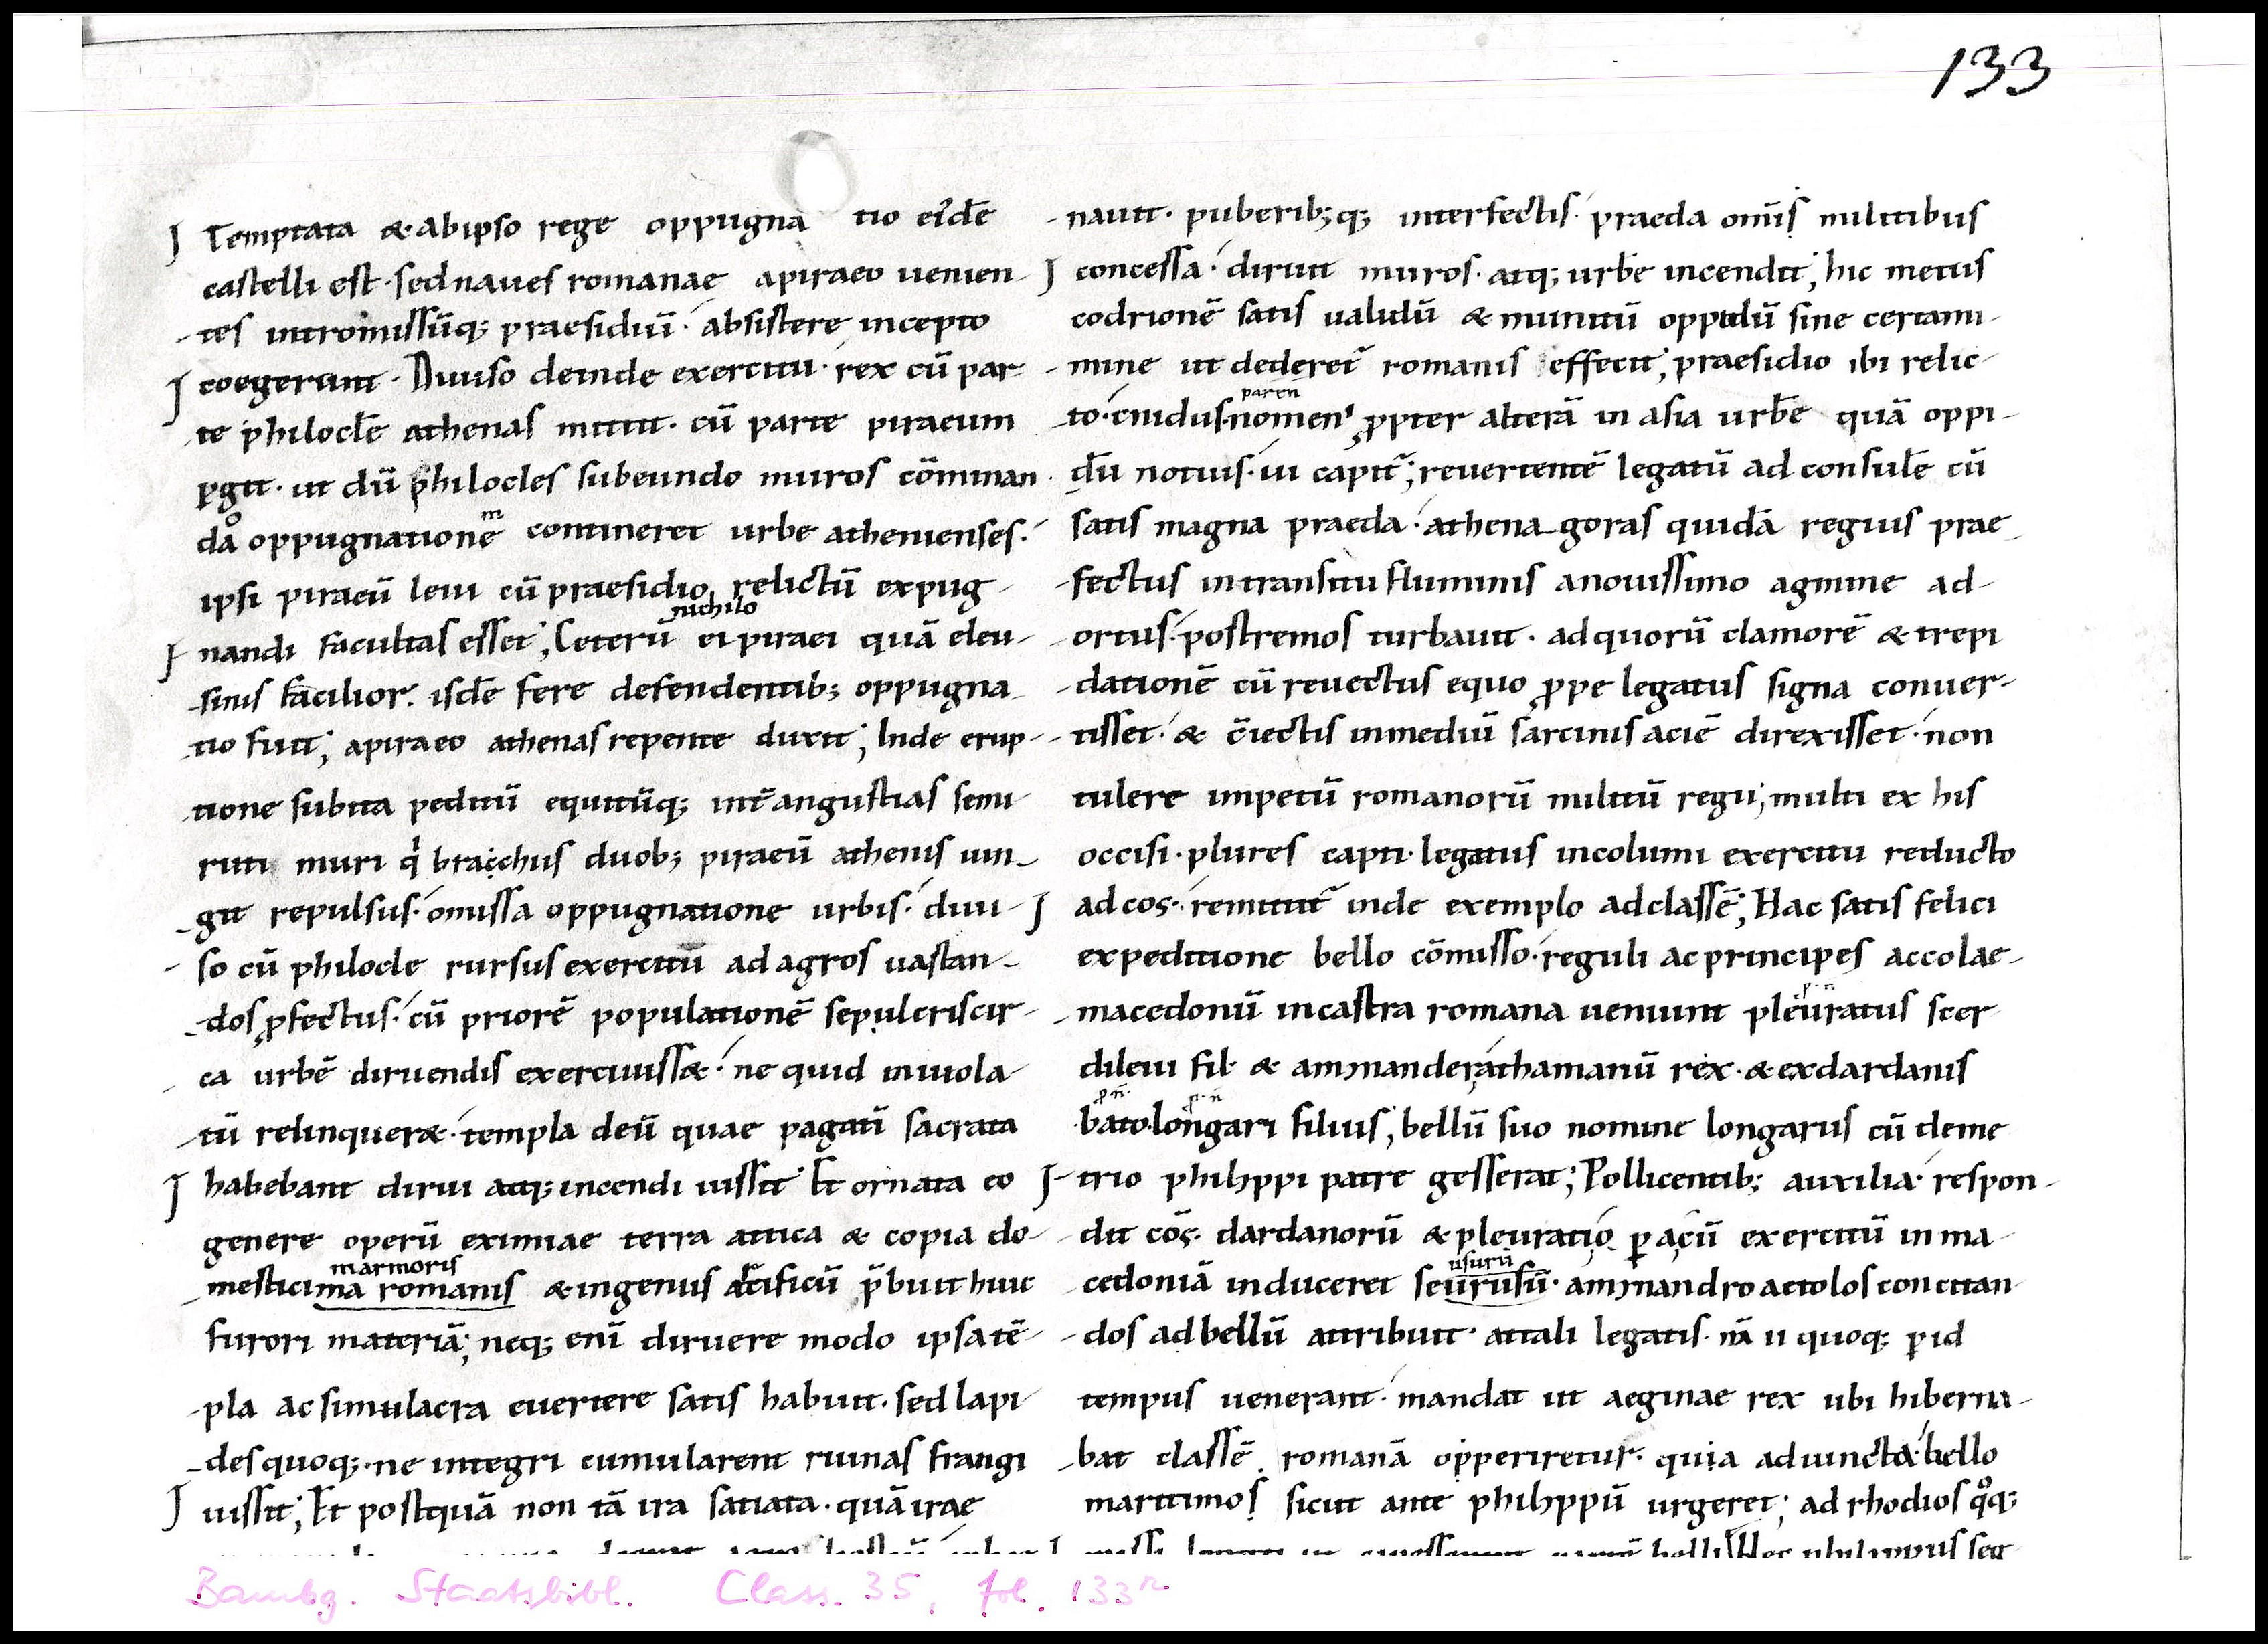 133
Temptata & abipso rege oppugna tio eidē
castelli est · sed naues romanae apiraeo uenien-
-tes intromissūq; praesidiū · absistere incepto
coegerunt · Diuiso deinde exercitu · rex cū par-
te philoclē athenas mittit · cū parte piraeum
ꝑgit · ut dū philocles subeundo muros cōminan
do oppugnationē contineret urbe athenienses ·
ipsi piraeū leui cū praesidio relictū expug-
nichilo
nandi facultas esset; Ceterū ei piraei quā eleu-
-sinis facilior · isdē fere defendentib; oppugna-
-tio fuit; apiraeo athenas repente duxit; Inde erup-
-tione subita peditū equitūq; int̄ angustias semi-
ruti muri q̇ bracchiis duob; piraeū athenis iun-
-git repulsus · omissa oppugnatione urbis · diui-
- so cū philocle rursus exercitū ad agros uastan-
-dos ꝓfectus · cū priorē populationē sepulcris cir-
-ca urbē diruendis exercuiss& · ne quid inuiola-
-tū relinquer& · templa deū quae pagatī sacrata
habebant dirui atq; incendi iussit · Et ornata eo
genere operū eximiae terra attica & copia do-
marmoris
-mestici ma romanis & ingeniis artificū p̄buit huic
furori materiā; neq; enī diruere modo ipsa tē-
-pla ac simulacra euertere satis habuit · sed lapi-
-des quoq; · ne integri cumularent ruinas frangi
iussit; Et postquā non tā ira satiata · quā irae
-nauit · puberib;q; interfectis · praeda omīs militibus
concessa · diruit muros · atq; urbē incendit; hic metus
codrionē satis ualidū & munitū oppidū sine certami-
-mine ut dederet̄ romanis effecit; praesidio ibi relic-
paren
-to · cnidus · nomen ꝓpter alterā in asia urbē quā oppi-
dū notius · ui capit̄; reuertentē legatū ad consulē cū
satis magna praeda · athenagoras quidā regius prae-
-fectus in transitu fluminis anouissimo agmine ad-
-ortus · postremos turbauit · ad quorū clamorē & trepi
-dationē cū reuectus equo ꝓpe legatus signa conuer-
-tisset · & c̄iectis inmediū sarcinis aciē direxisset · non
tulere impetū romanorū militū regii; multi ex his
occisi · plures capti · legatus incolumi exercitu reducto
ad cos · remittit̄ inde exemplo ad classē; Hac satis felici
expeditione bello cōmisso · reguli ac principes accolae-
-macedonū in castra romana ueniunt pleuratus scer-
dileui fil & amynander athamanū rex · & ex dardanis
bato longari filius; bellū suo nomine longarus cū deme
-trio philippi patre gesserat; Pollicentib; auxilia · respon-
dit cōs · dardanorū & pleuratio ꝑ acū exercitū in ma-
usurū
cedoniā induceret se urusū · amynandro aetolos concitan
-dos ad bellū attribuit · attali legatis · nā ii quoq; ꝑ id
tempus uenerant · mandat ut aeginae rex ubi hiberna-
-bat classē romanā opperiretur · quia adiuncta · bello
maritimos sicut ante philippū urgeret; ad rhodios q̊q;
Bambg. Staatsbibl. Class. 35, fol. 133r